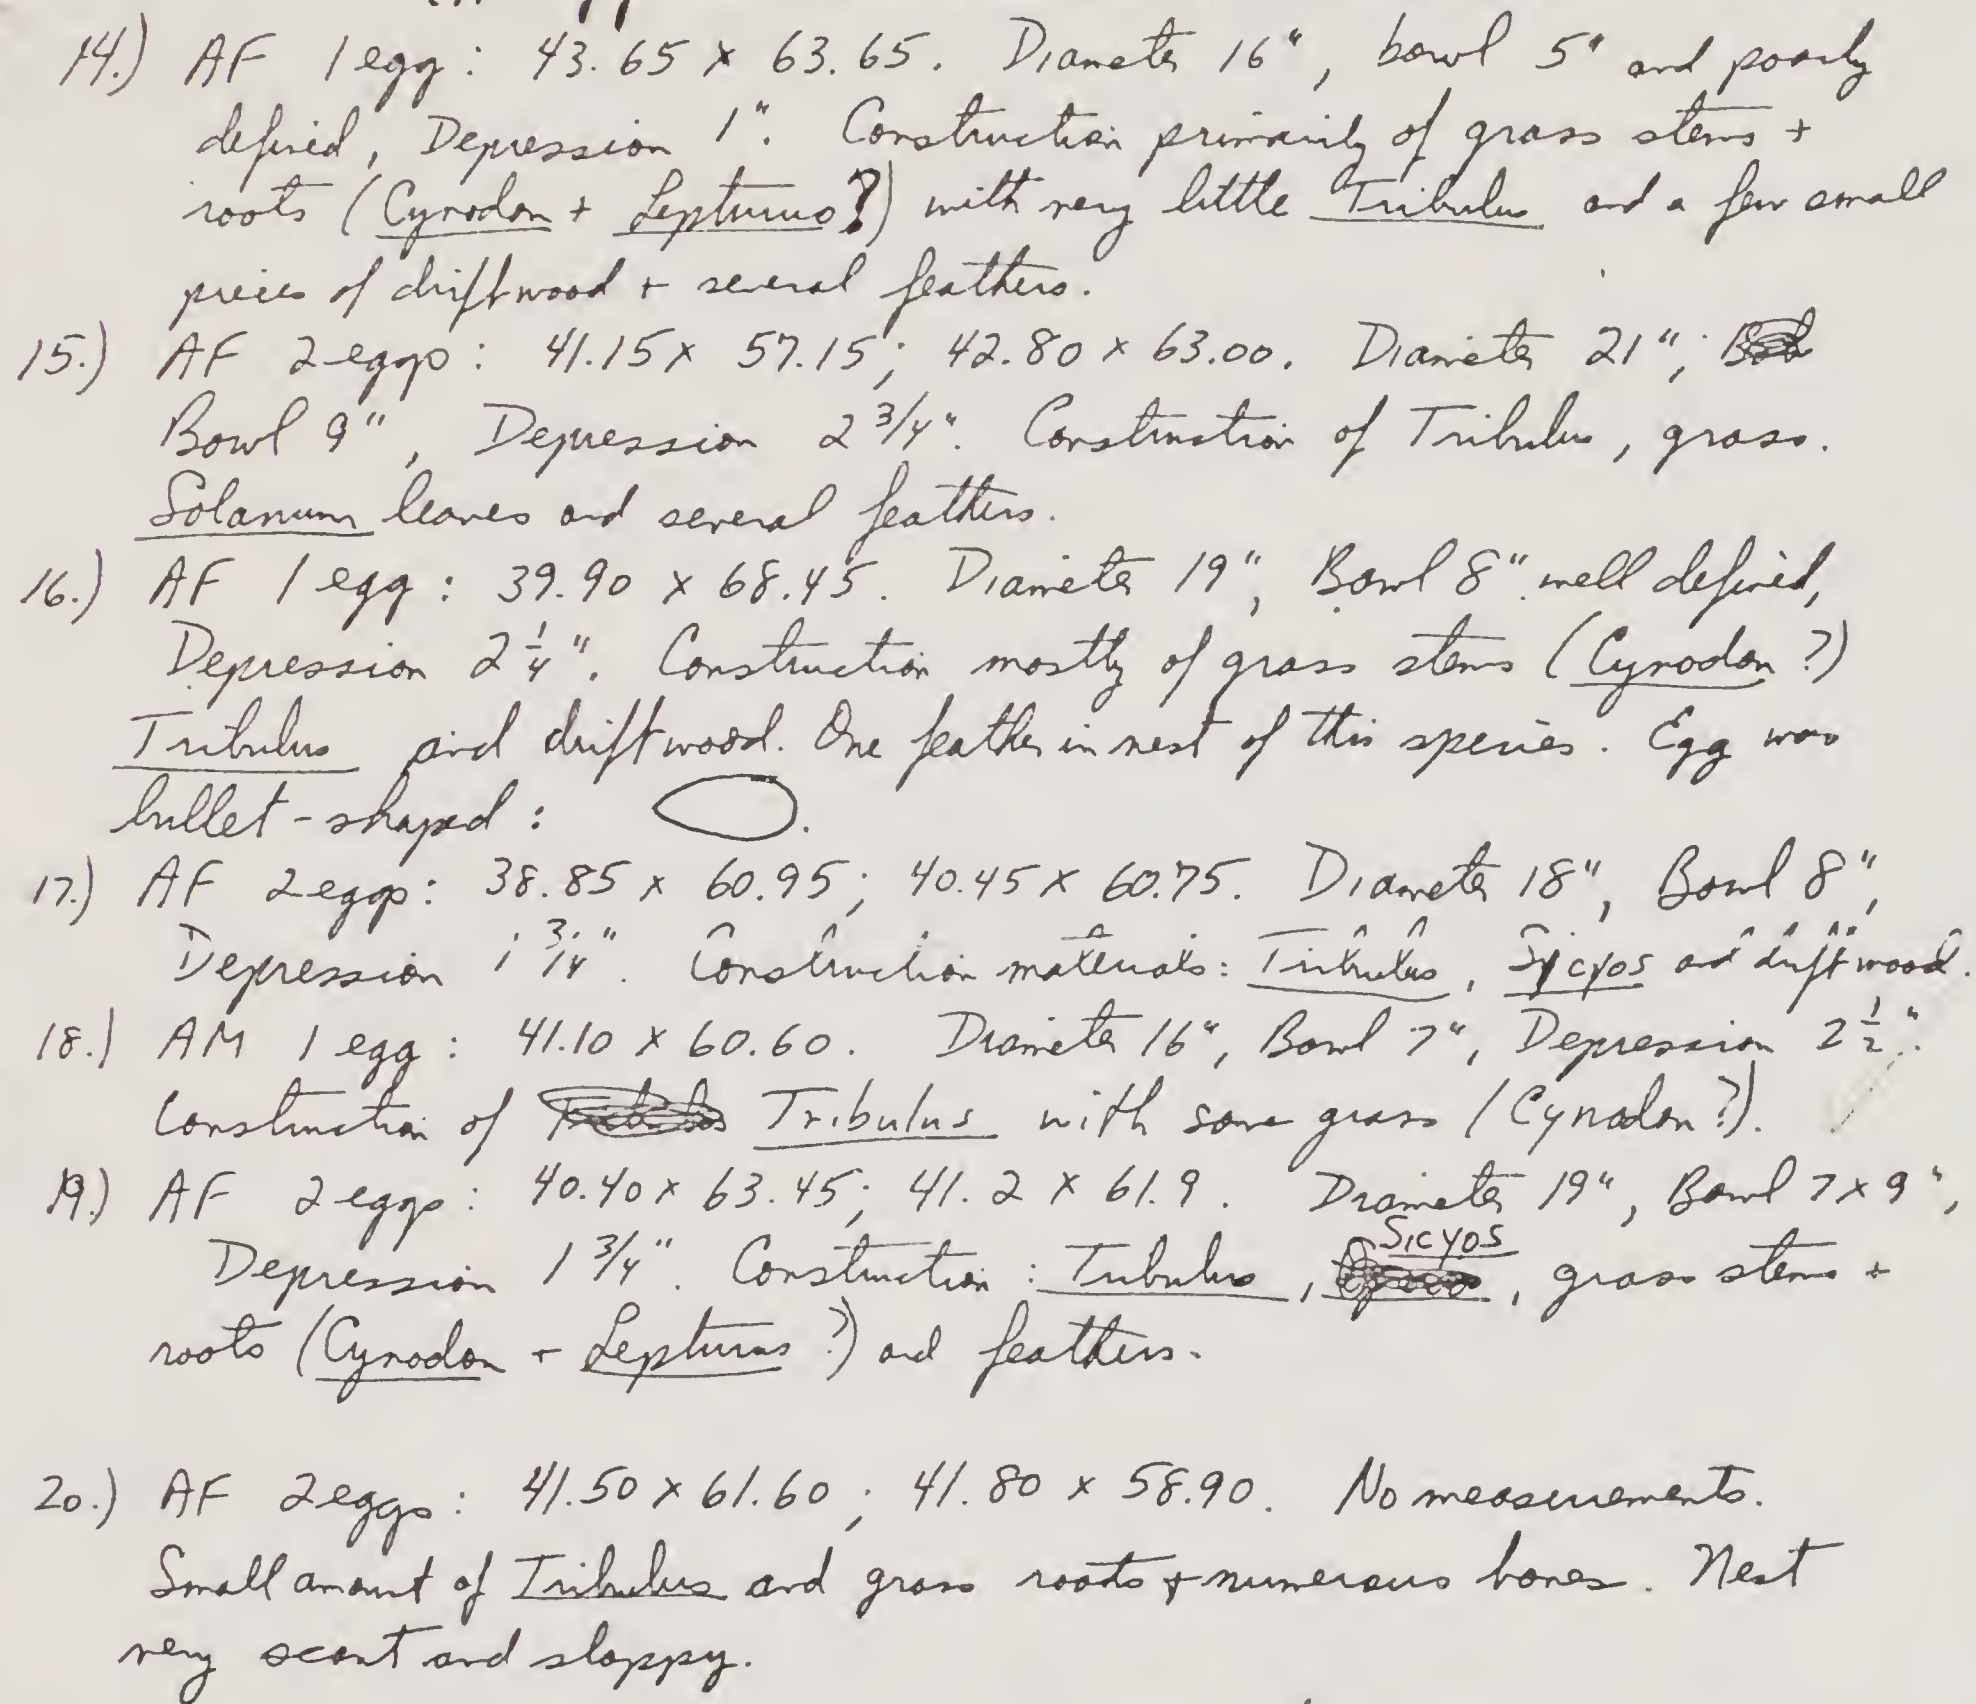 14.) AF 1 egg: 43.65 x 63.65. Diameter 16", bowl 5" and poorly
defined, Depression 1". Construction primarily of grass stems +
roots (Cynodon + Lepturus?) with very little Tribulus and a few small
pieces of driftwood + several feathers.
15.) AF 2 eggs: 41.15 x 57.15; 42.80 x 63.00. Diameter 21";
Bowl 9", Depression 2 3/4". Construction of Tribulus, grass.
Solanum leaves and several feathers.
16.) AF 1 egg: 39.90 x 68.45. Diameter 19", Bowl 8" well defined,
Depression 2 1/4". Construction mostly of grass stems (Cynodon?)
Tribulus and driftwood. One feather in nest of this species. Egg was
bullet-shaped:
17.) AF 2 eggs: 38.85 x 60.95; 40.45 x 60.75. Diameter 18", Bowl 8",
Depression 1 3/4". Construction materials: Tribulus, Sicyos and driftwood.
18.) AM 1 egg: 41.10 x 60.60. Diameter 16", Bowl 7", Depression 2 1/2".
Construction of Tribulus with some grass (Cynodon?).
19.) AF 2 eggs: 40.40 x 63.45; 41.2 x 61.9. Diameter 19", Bowl 7 x 9",
Depression 1 3/4". Construction: Tribulus, Sicyos, grass stems +
roots (Cynodon + Lepturus?) and feathers.
20.) AF 2 eggs: 41.50 x 61.60; 41.80 x 58.90. No measurements.
Small amount of Tribulus and grass roots + numerous bones. Nest
very scant and sloppy.